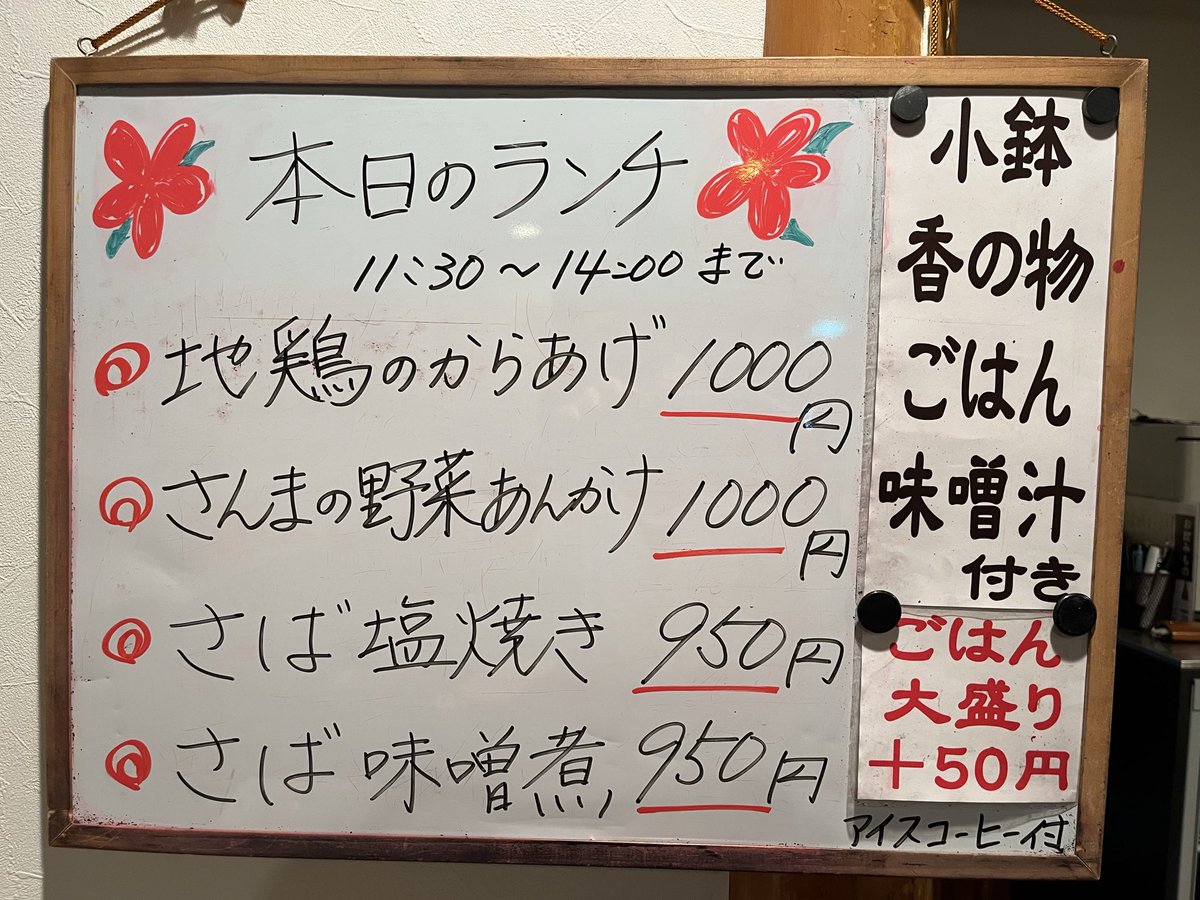 本日のランチ
11:30〜14:00まで
地鶏のからあげ 1000円
さんまの野菜あんかけ 1000円
さば塩焼き 950円
さば味噌煮 950円
小鉢
香の物
ごはん
味噌汁
付き
ごはん
大盛り
+50円
アイスコーヒー付